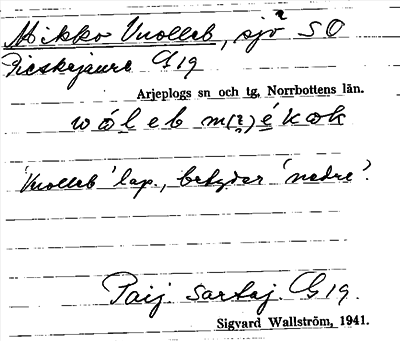 Mikko Vuolleb, sjö? SO
Pieskejaure G19
Arjeplogs sn och tg, Norrbottens län.
wålеb m(i)ékæk
'Vuolleb' lap., betyder 'nedre'.
Paij. Sartaj. G19.
Sigvard Wallström, 1941.